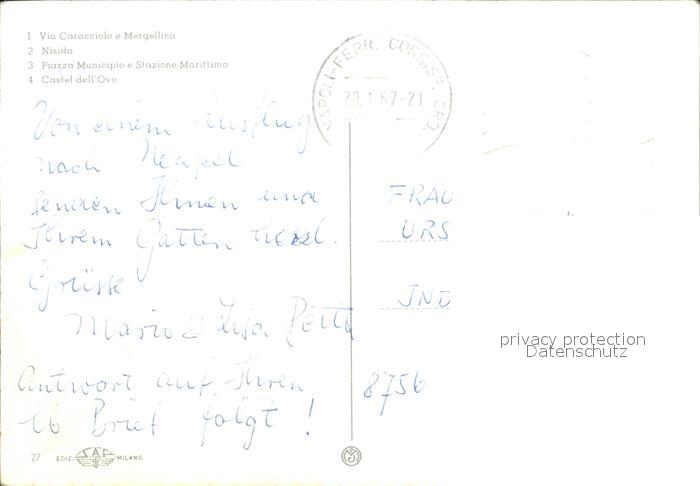 1 Via Caracciolo e Mergellina
2 Nisida
3 Piazza Municipio e Stazione Marittima
4 Castel dell'Ovo
NAPOLI-FERR. CORRISP. ORD.
29.1.67-21
Von einem Ausflug
nach Neapel
senden Ihnen und
Ihrem Gatten herzl.
Grüsse
Mario & Lisa
Antwort auf Ihren
lb Brief folgt!
FRAU
URS
IND
8756
privacy protection
Datenschutz
27 EDIZ. SAF MILANO